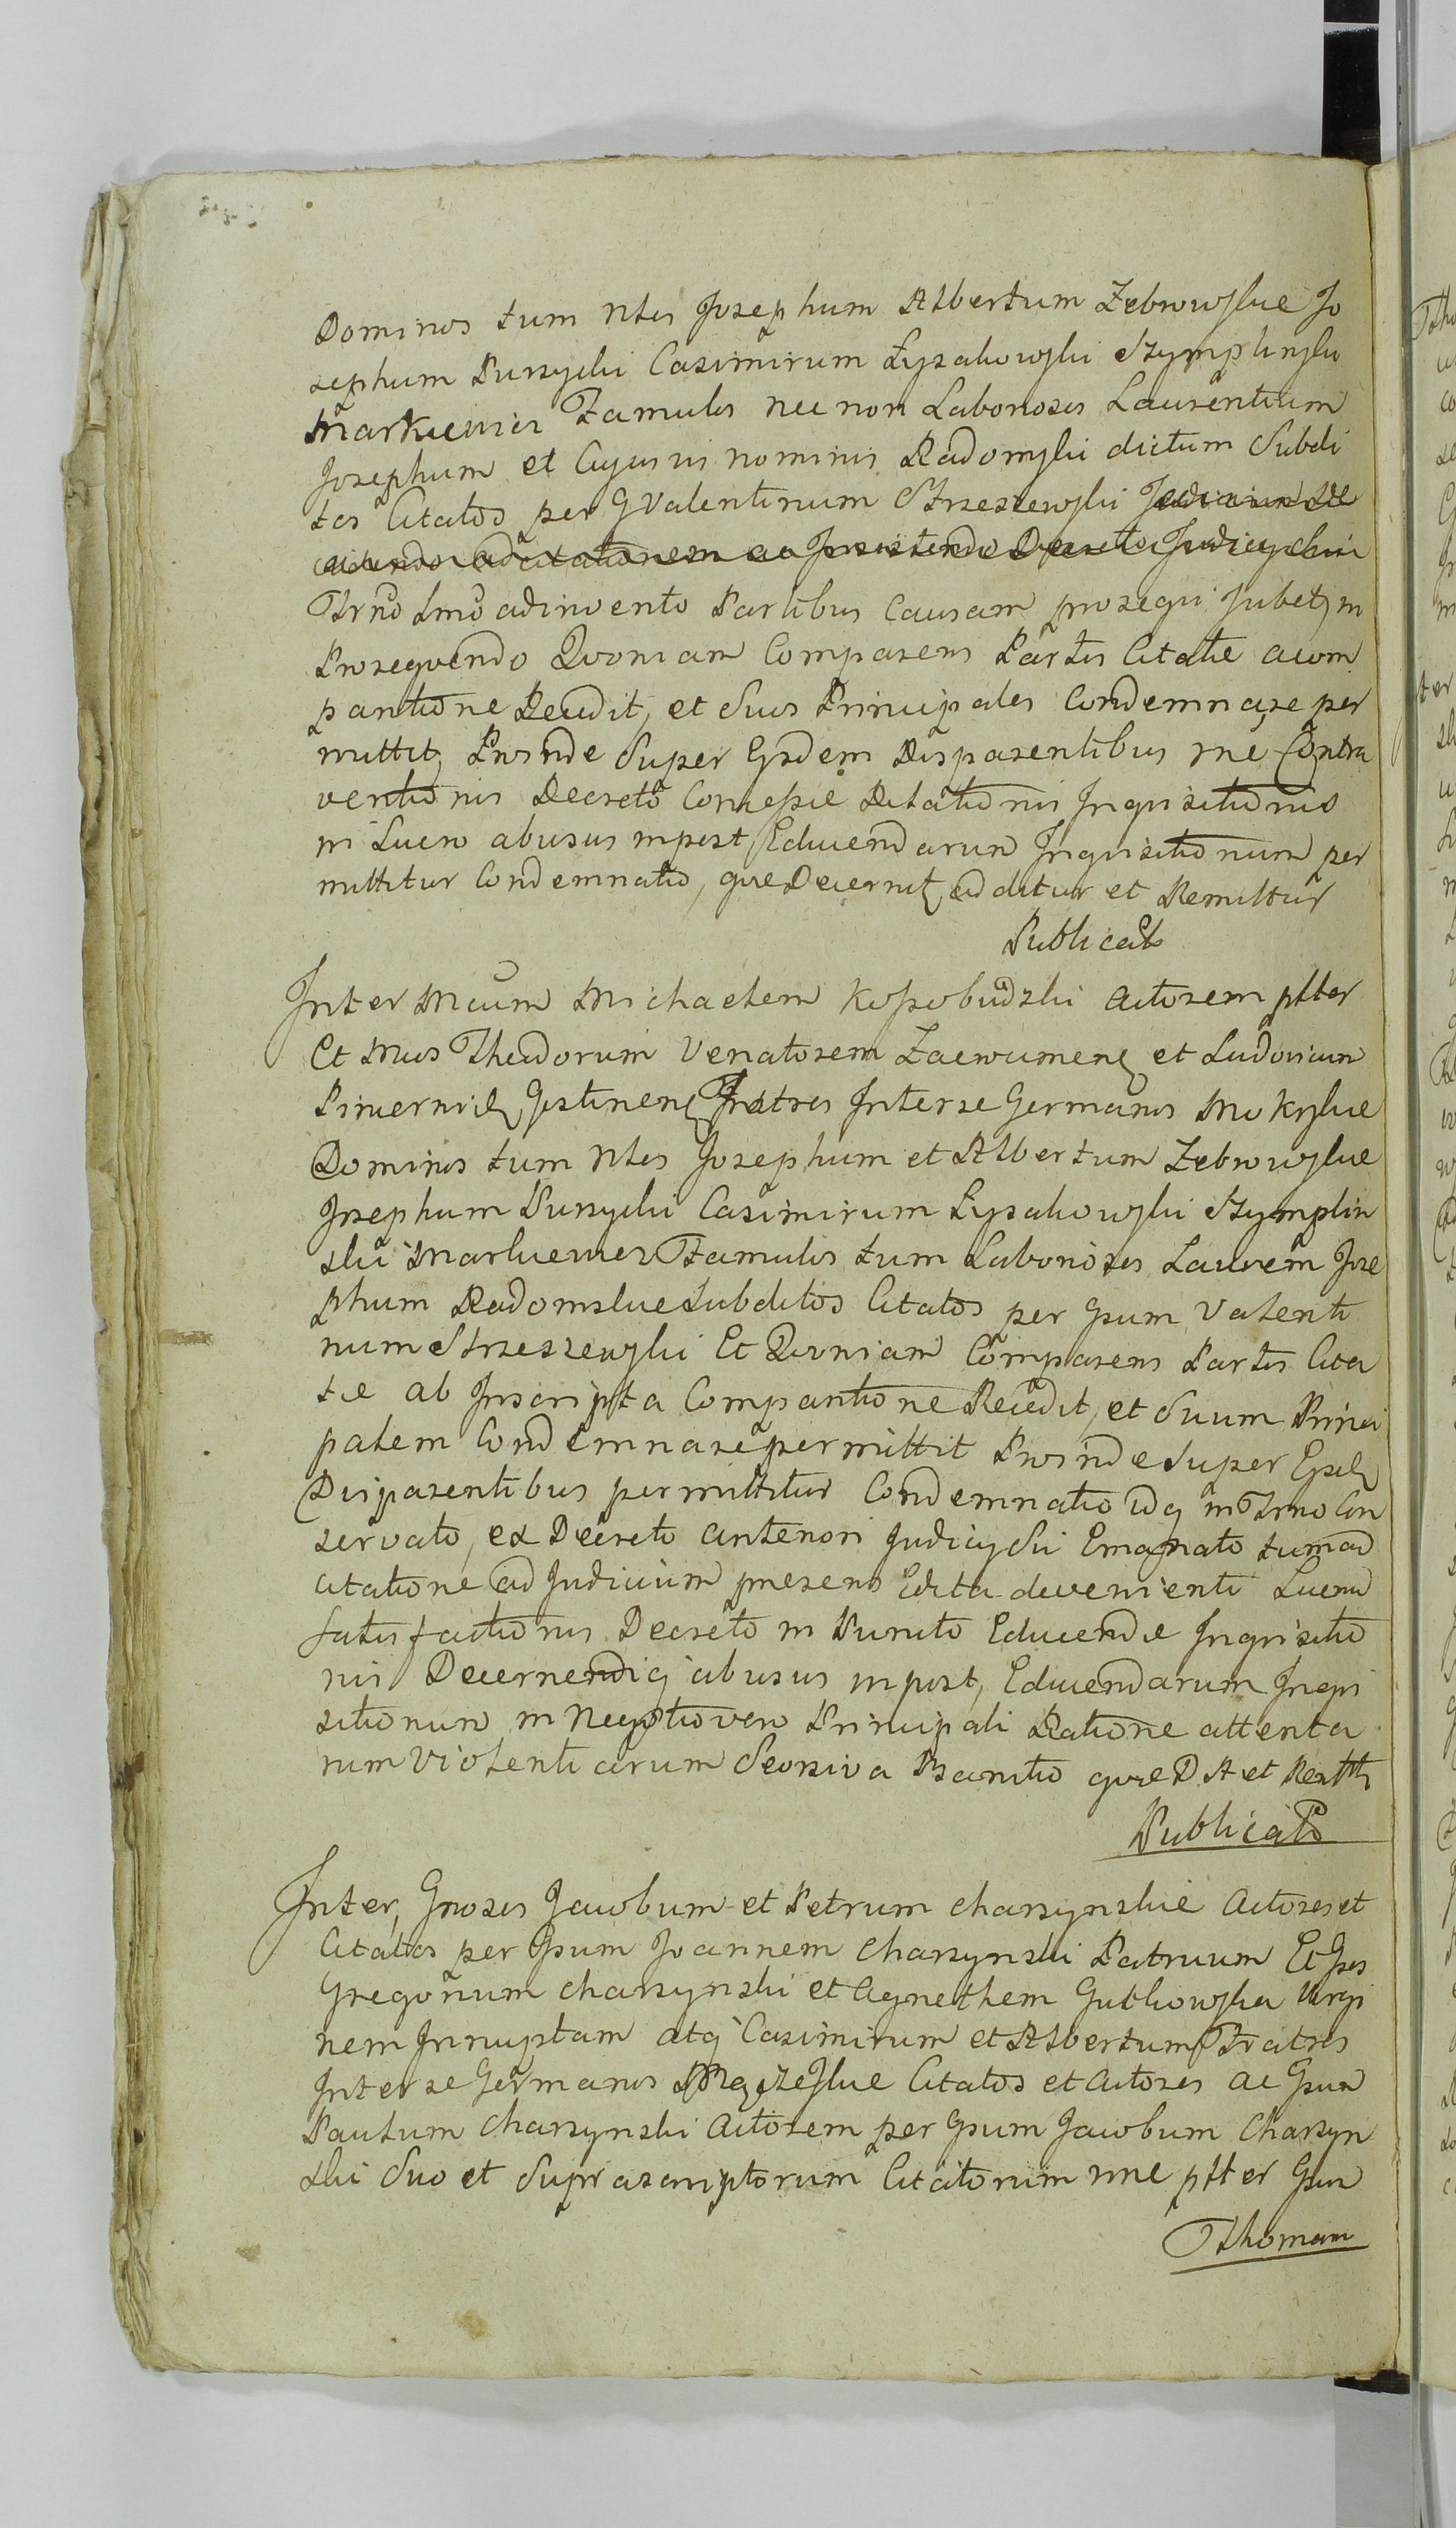 Dominos tum Nles Josephum Albertum Zebrowskie Jo
sephum Pursycki Casimirum Łyzakowski Szymplinski
Markiewicz Famulos nec non Laboriosos Laurentium
Josephum et Cujusvis nominis Radomski dictum Subdi
tos Citatos per G Valentinum Strzeszewski Judicium
ad citationem ac Decreto Judicy
Trno Lmo adinvento Partibus Causam prosequi Jubet, in
Prosequendo Qvoniam Comparens Partis Citatae a com
paritione Recedit, et Suos Principales Condemnare per
mittit, Proinde Super Ijsdem Disparentibus rne Contra
ventionis Decreto Concessae Dilationis Inqvisitionis
in Lucro abusus inpost, Educendarum Inqvisitionum per
mittitur Condemnatio, qvae Decernit, additur et Remittitur
Publicats
Inter Mcum Michaelem Kossobudzki Actorem ptter
Et Mcos Theodorum Venatorem Zacwumen, et Ludovicum
Pincernid, Gostinen, Fratres Inter se Germanos Mokrskie
Dominos tum Nles Josephum et Albertum Zebrowskie
Josephum Pursycki Casimirum Łyzakowski Szymplin
ski Markiewicz Famulos tum Laboriosos Laurem Jose
phum Radomskie Subditos Citatos per Gsum Valenti
num Strzeszewski Et Qvoniam Comparens Partis Cita
tae ab Inscripta Comparitione Recedit, et Suum Princi
palem Condemnare permittit Proinde Super Eosd,
Disparentibus permittitur Condemnatio idq in Trno Con
servato, ex Decreto anteriori Judicy Sui Emanato tum ad
Citatione ad Judicium praesens Edita devenienti Lucrand
satisfactionis Decreto in Puncto Educendae Inqvisitio
nis Decernendiq abusus inpost, Educendarum Inqvi
sitionum in Negotio vero Principali Ratione attenta
rum Violentiarum Seorsiva Bannitio qvae D A et Rextth
Publicats
Inter, Gnosos Jacobum et Petrum Charzynskie Actores et
Citatos per Gsum Joannem Charzynski Patruum Et Gsos
Gregorium Charzynski et Agnethem Gutkowska Virgi
nem Innuptam atq Casimirum et Albertum Fratres
Inter se Germanos Citatos et Actores ac Gsum
Paulum Charzynski Actorem per Gsum Jacobum Charzyn
ski Suo et Suprascriptorum Citatorum nne ptter Gsum
Thomam